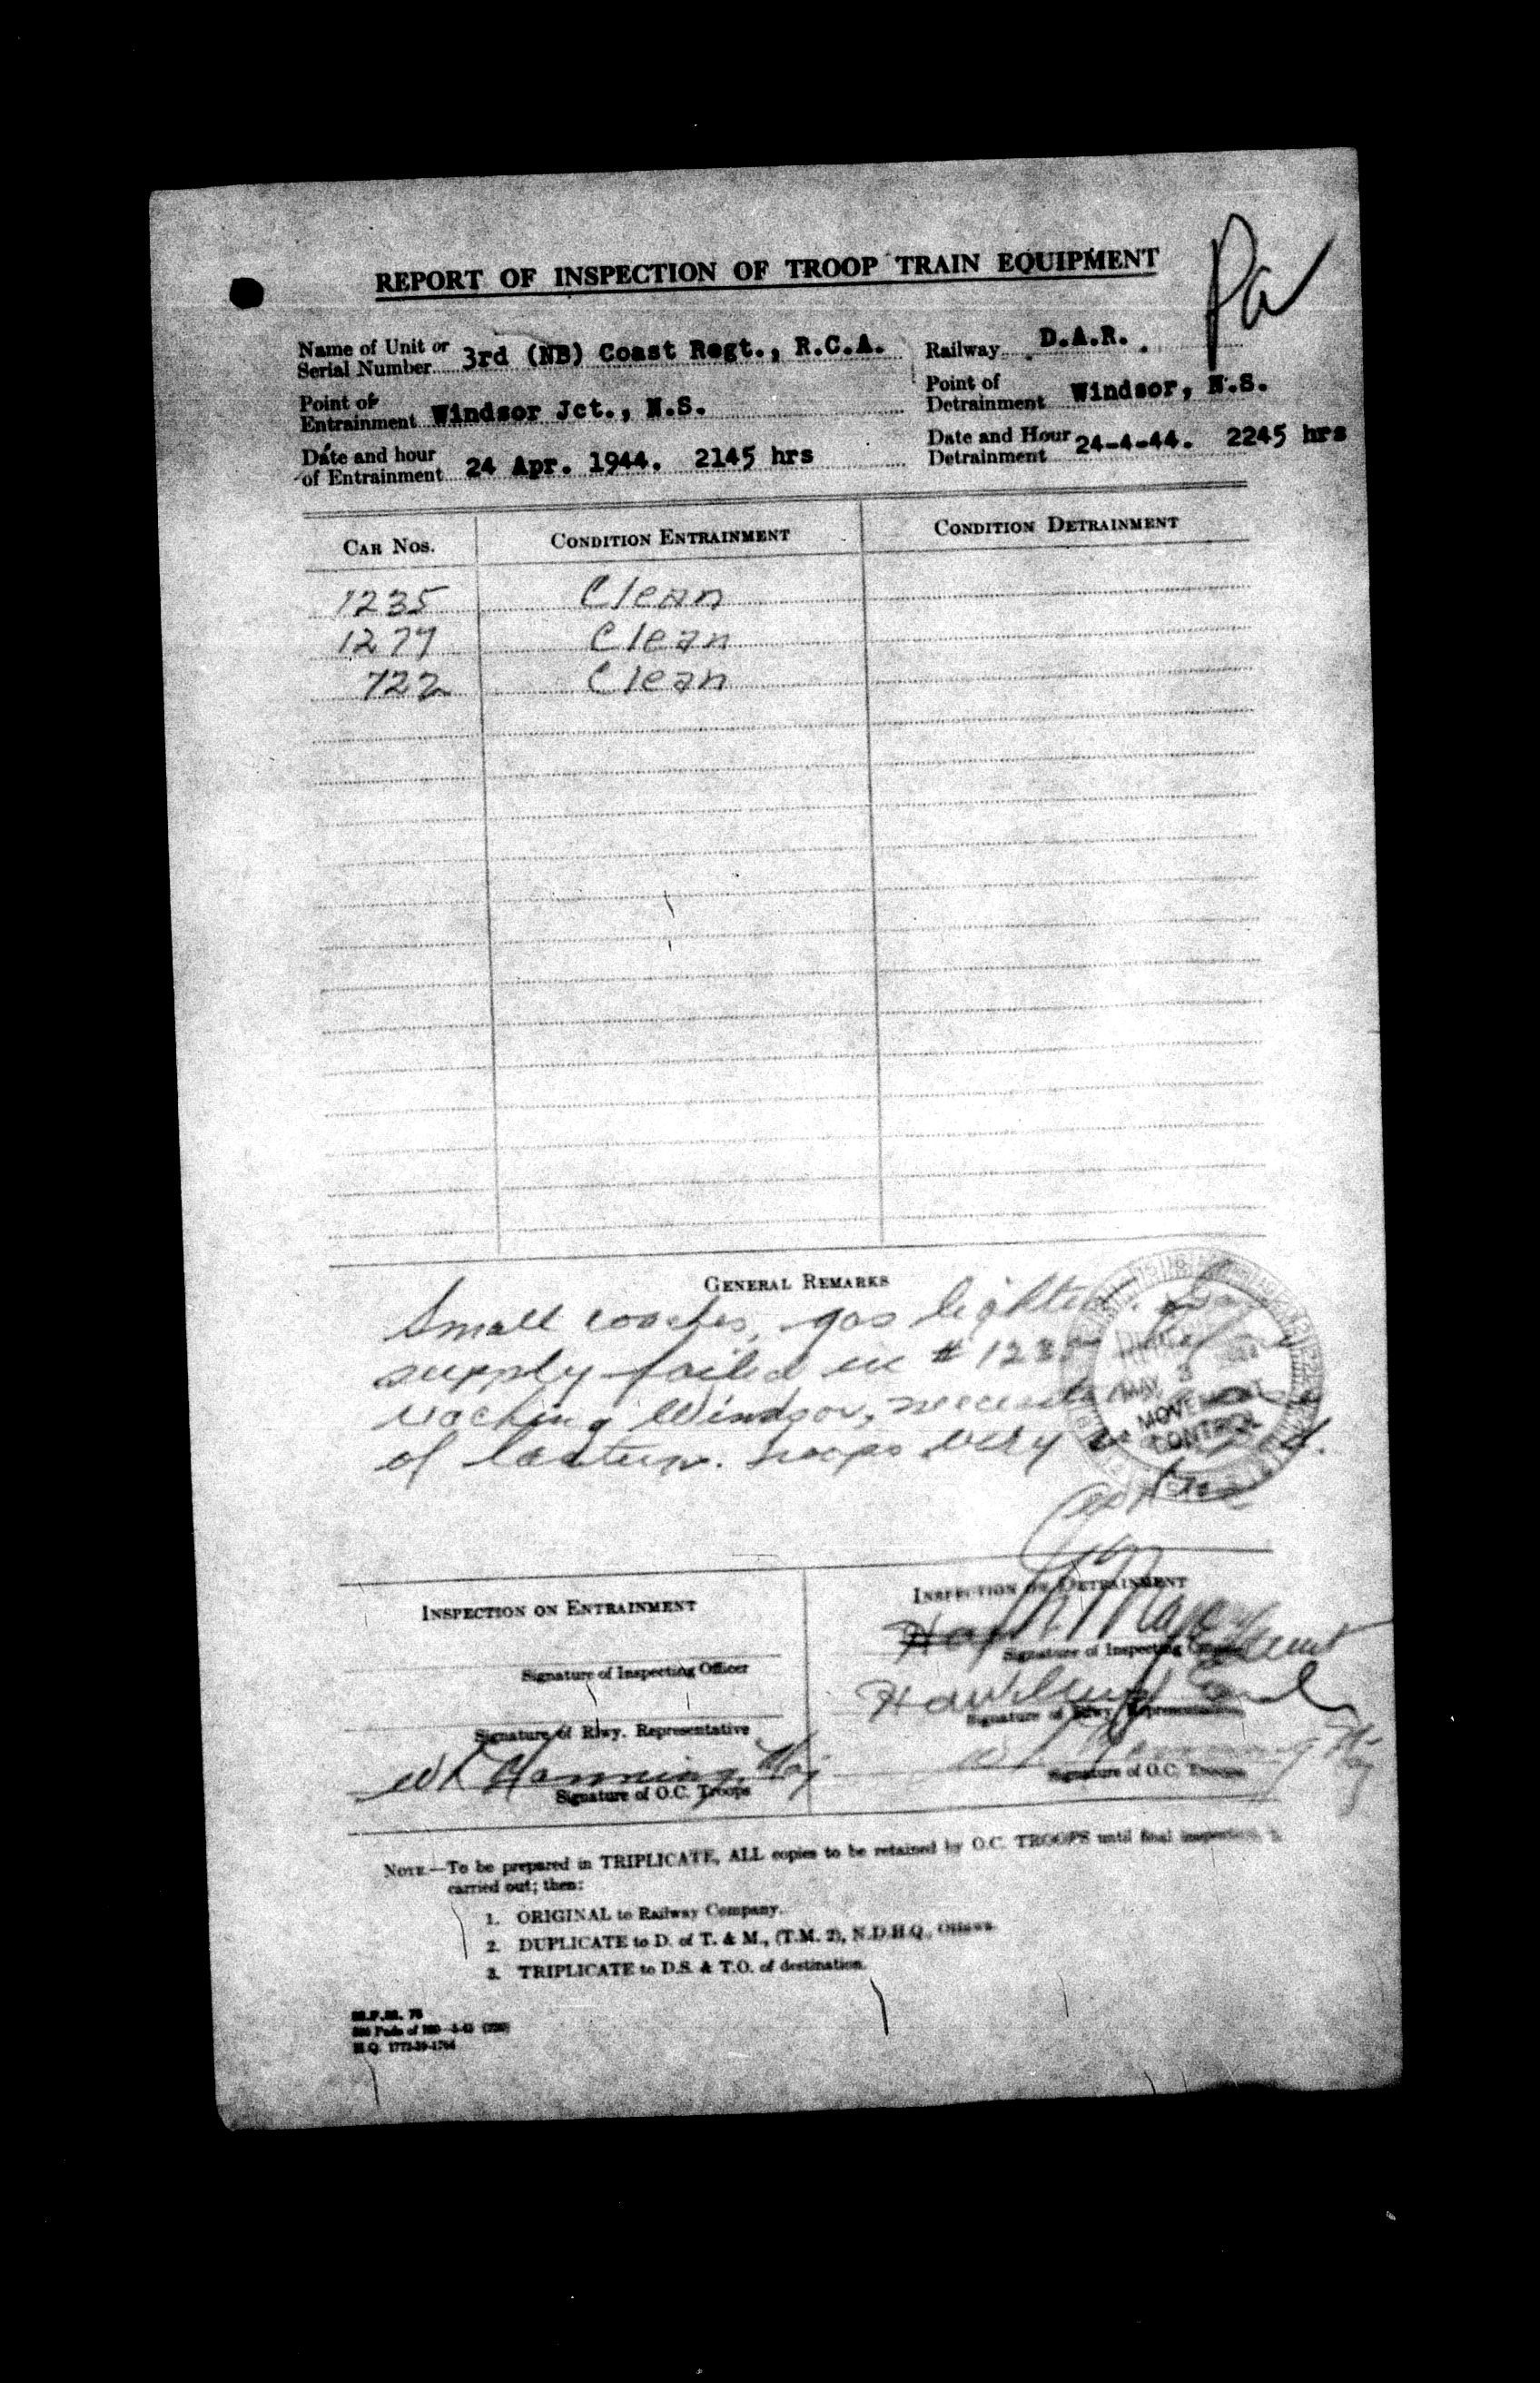 Pa
REPORT OF INSPECTION OF TROOP TRAIN EQUIPMENT
Name of Unit or Serial Number 3rd (NB) Coast Regt., R.C.A. Railway D.A.R.
Point of Entrainment Windsor Jct., N.S. Point of Detrainment Windsor, N.S.
Date and hour of Entrainment 24 Apr. 1944. 2145 hrs Date and Hour Detrainment 24-4-44. 2245 hrs
CAR NOS. CONDITION ENTRAINMENT CONDITION DETRAINMENT
1235 Clean
1277 Clean
722 Clean
GENERAL REMARKS
Small coaches, gas lighted.
supply failed in # 1235
reaching Windsor,
of lantern. Troops very
MAY 3
MOVEMENT
CONTROL
INSPECTION ON ENTRAINMENT INSPECTION ON DETRAINMENT
Signature of Inspecting Officer Signature of Inspecting Officer
Signature of Rlwy. Representative Signature of Rlwy. Representative
Maj
Signature of O.C. Troops Signature of O.C. Troops
NOTE.—To be prepared in TRIPLICATE, ALL copies to be retained by O.C. TROOPS until final inspection is
carried out; then:
1. ORIGINAL to Railway Company.
2. DUPLICATE to D. of T. & M., (T.M. 2), N.D.H.Q., Ottawa.
3. TRIPLICATE to D.S. & T.O. of destination.
M.F.M. 75